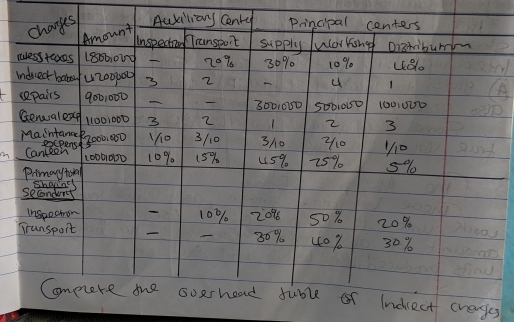 Charges Amount Auxiliary Center Principal centers
Inspection Transport Supply Workshop Distribution
taxes 1800000 - 20% 30% 10% 40%
Indirect 4200000 3 2 - 4 1
repairs 900000 - - 300000 500000 100000
General exp 1100000 3 2 1 2 3
Maintance expenses 2000000 1/10 3/10 3/10 2/10 1/10
Canteen 1000000 10% 15% 45% 25% 5%
Primary total
Sharing
Secondary
Inspection - 10% 20% 50% 20%
Transport - - 30% 40% 30%
Complete the overhead table of Indirect charges